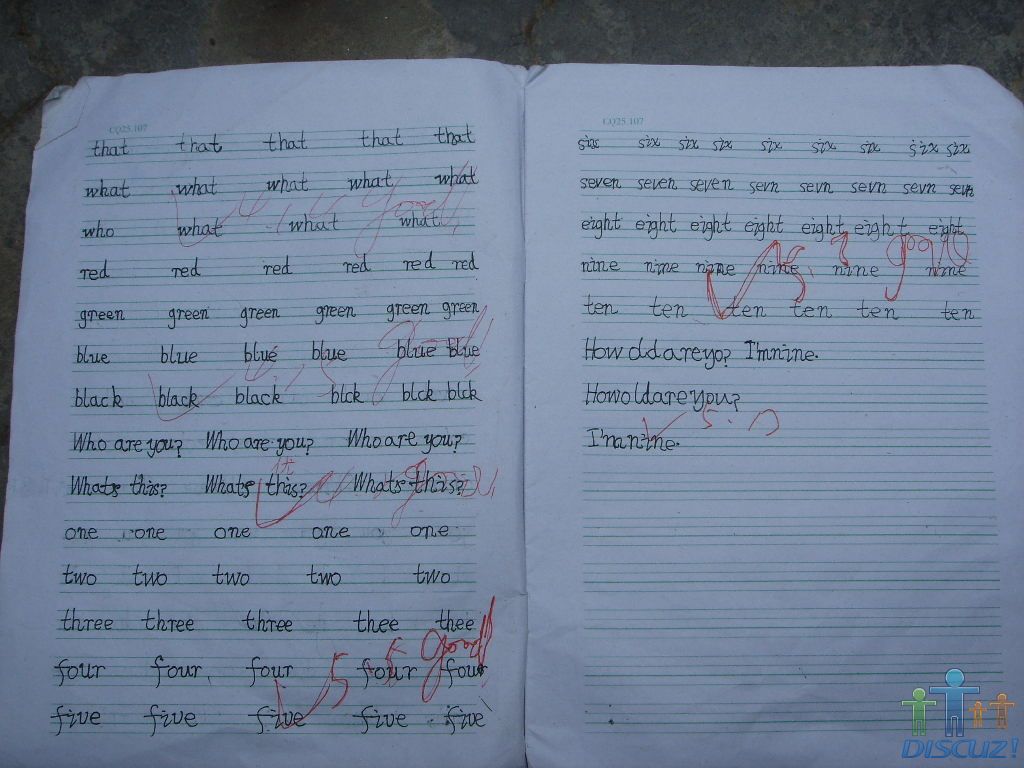 CQ25.107
that that that that that
what what what what what
who what what what
red red red red red red
green green green green green
blue blue blue blue blue blue
black black black blck blck blck
Who are you? Who are you? Who are you?
Whats this? Whats this? Whats this?
one one one one one
two two two two two
three three three thee thee
four four four four four
five five five five five
good
good
good
5 good
CQ25.107
six six six six six six six six six
seven seven seven sevn sevn sevn sevn sevn
eight eight eight eight eight eight eight
nine nine nine nine nine nine
ten ten ten ten ten ten
How old are yo? I'm nine.
How old are you?
I'm nine.
good
5.
DISCUZ!